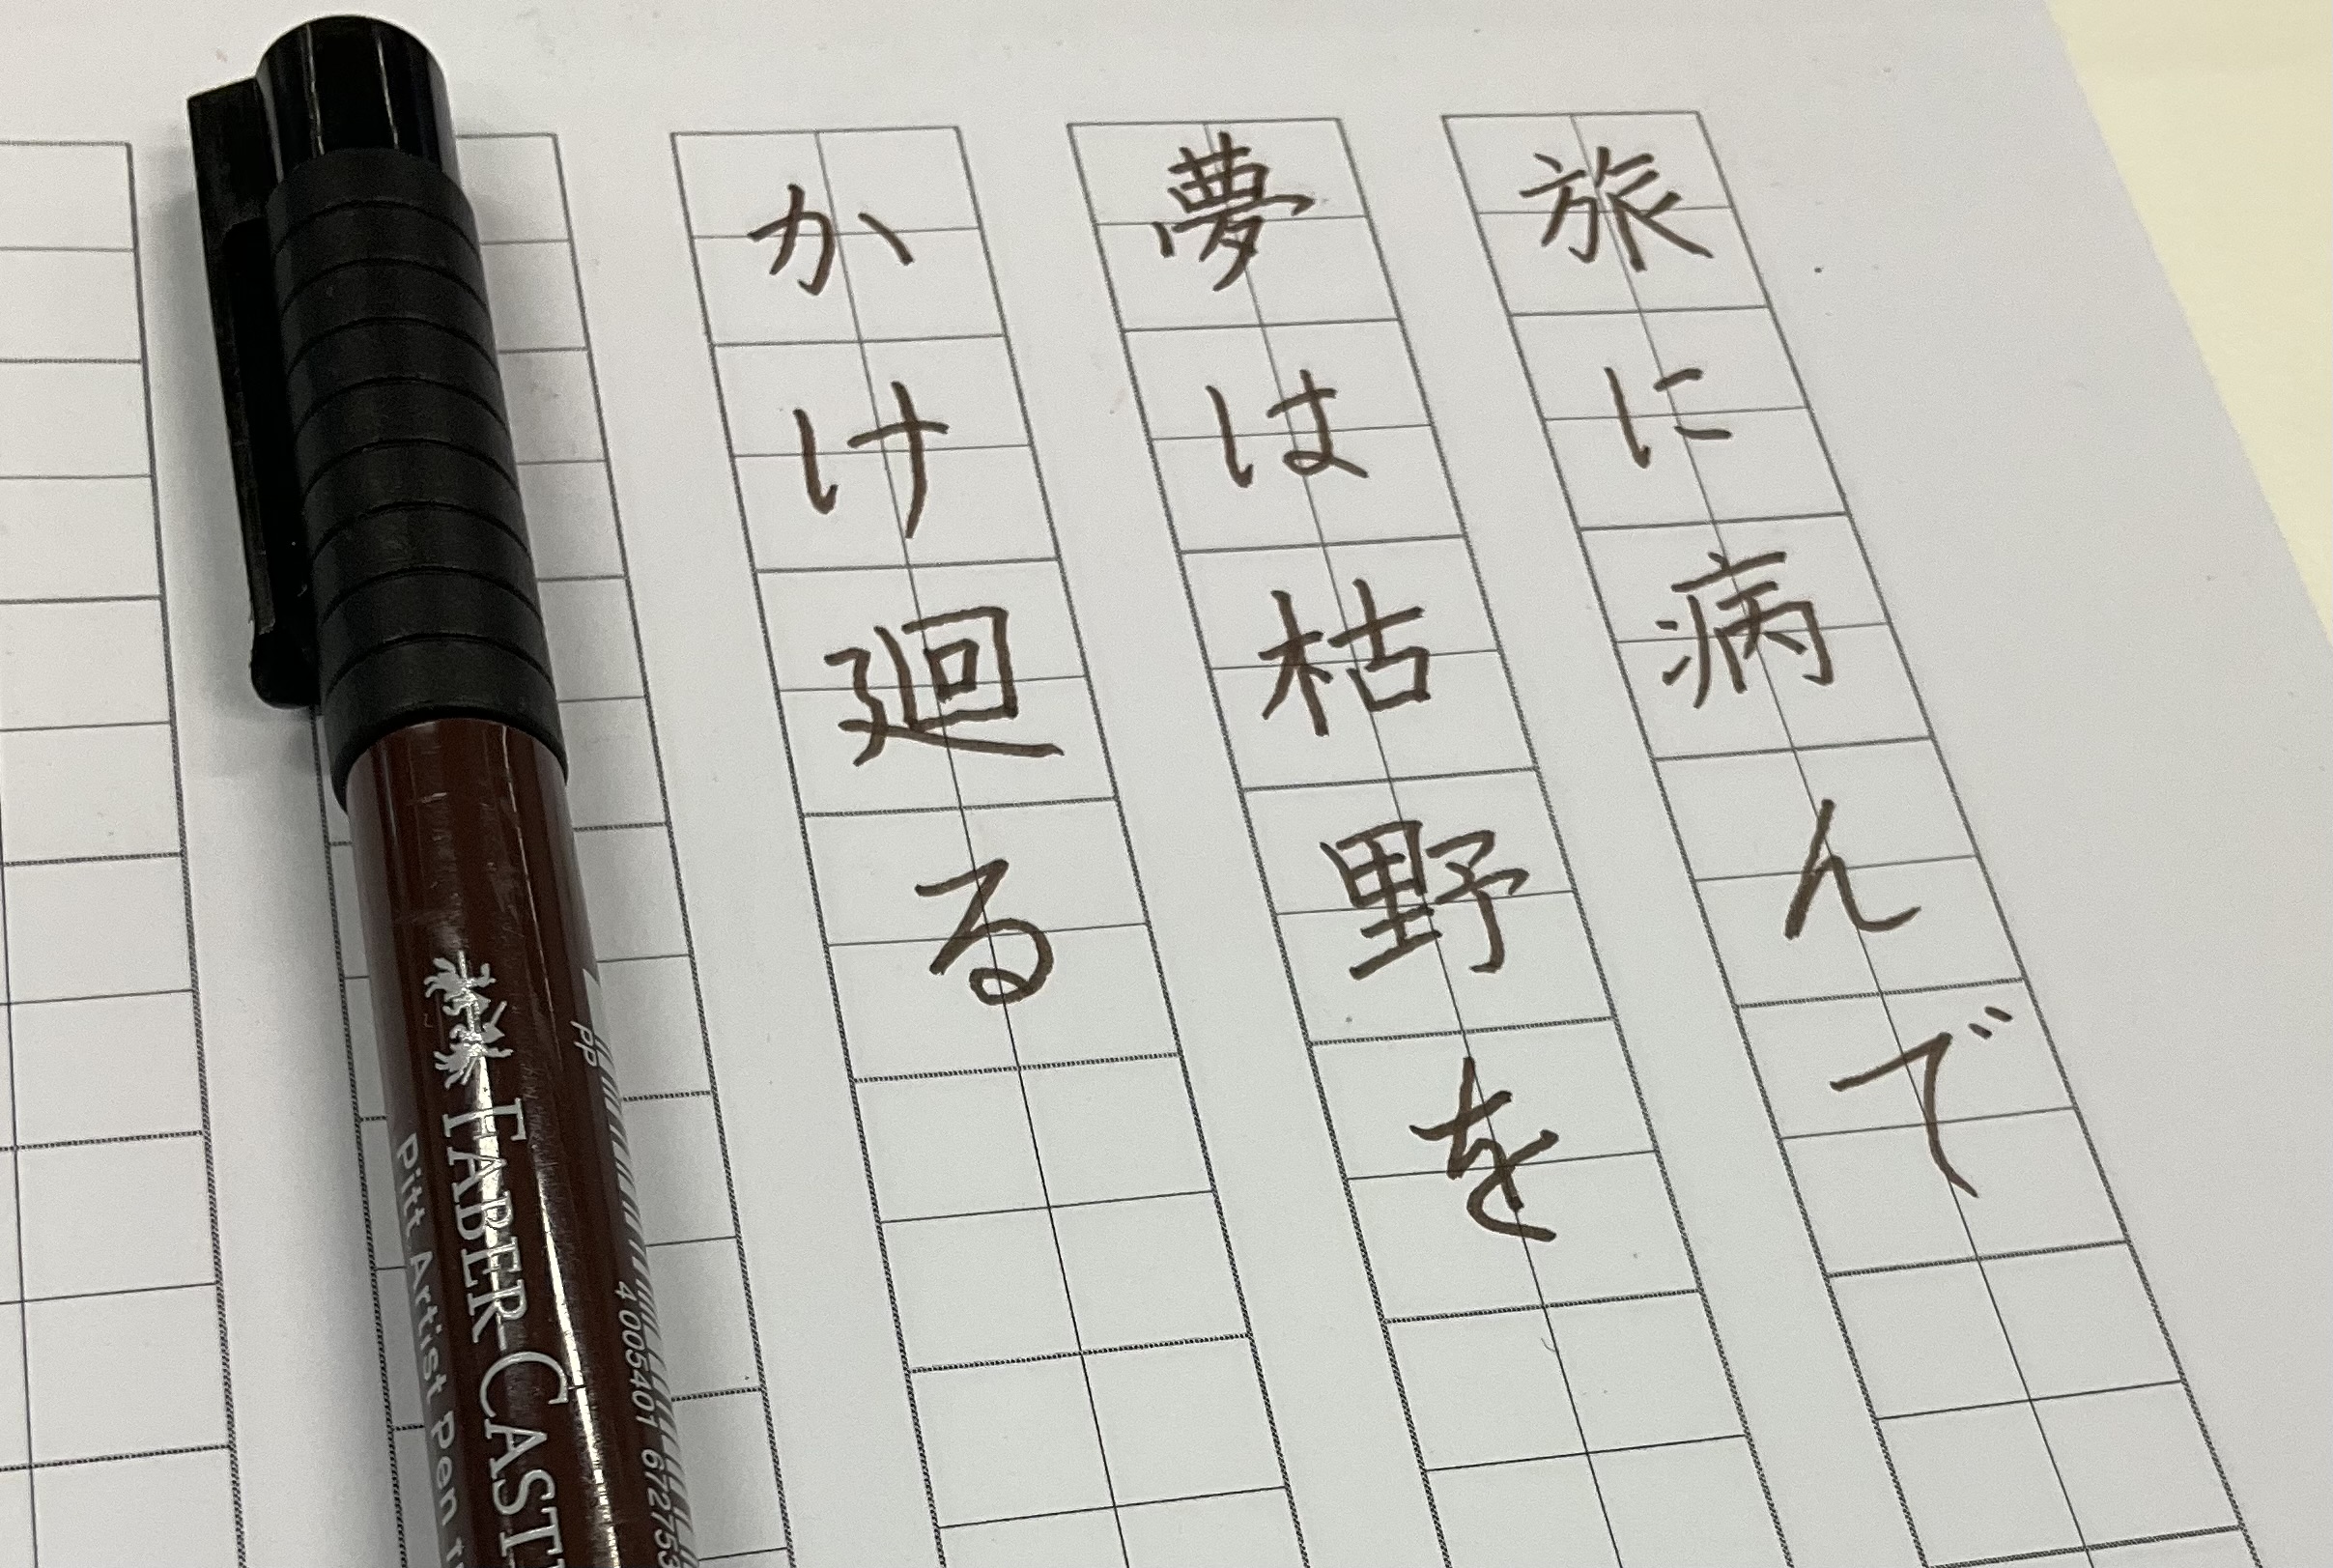 旅に病んで
夢は枯野を
かけ廻る
FABER-CAST
Pitt Artist Pen
PP
4 005401 672753